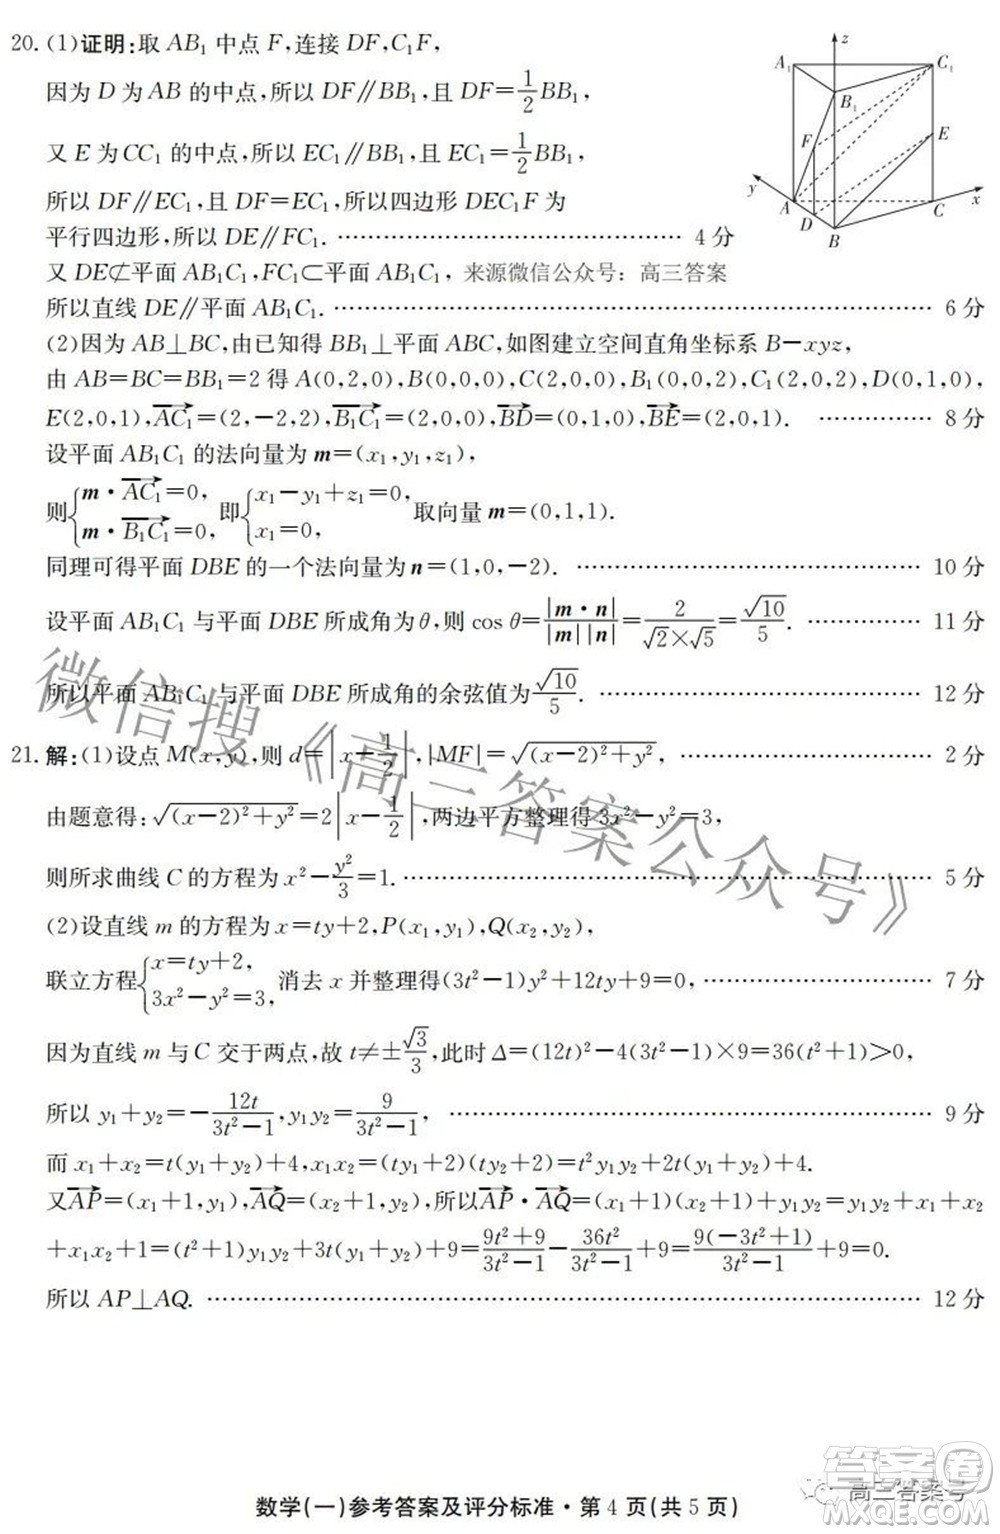 20. (1)证明:取 AB₁ 中点 F,连接 DF,C₁F,
因为 D 为 AB 的中点,所以 DF∥BB₁,且 DF=1/2 BB₁,
又 E 为 CC₁ 的中点,所以 EC₁∥BB₁,且 EC₁=1/2 BB₁,
所以 DF∥EC₁,且 DF=EC₁,所以四边形 DEC₁F 为
平行四边形,所以 DE∥FC₁. …… 4 分
又 DE⊄平面 AB₁C₁,FC₁⊂平面 AB₁C₁, 来源微信公众号：高三答案
所以直线 DE∥平面 AB₁C₁. …… 6 分
z
A₁
C₁
B₁
F
E
y
A
D
B
C
x
(2)因为 AB⊥BC,由已知得 BB₁⊥平面 ABC,如图建立空间直角坐标系 B-xyz,
由 AB=BC=BB₁=2 得 A(0,2,0),B(0,0,0),C(2,0,0),B₁(0,0,2),C₁(2,0,2),D(0,1,0),
E(2,0,1),→AC₁=(2,-2,2),→B₁C₁=(2,0,0),→BD=(0,1,0),→BE=(2,0,1). …… 8 分
设平面 AB₁C₁ 的法向量为 m=(x₁,y₁,z₁),
则{m·→AC₁=0, m·→B₁C₁=0, 即{x₁-y₁+z₁=0, x₁=0, 取向量 m=(0,1,1).
同理可得平面 DBE 的一个法向量为 n=(1,0,-2). …… 10 分
设平面 AB₁C₁ 与平面 DBE 所成角为θ,则 cos θ=|m·n|/|m||n|=2/(√2×√5)=√10/5. …… 11 分
所以平面 AB₁C₁ 与平面 DBE 所成角的余弦值为√10/5. …… 12 分
21. 解:(1)设点 M(x,y),则 d=|x-1/2|,|MF|=√((x-2)²+y²), …… 2 分
由题意得:√((x-2)²+y²)=2|x-1/2|,两边平方整理得3x²-y²=3,
则所求曲线 C 的方程为 x²-y²/3=1. …… 5 分
(2)设直线 m 的方程为 x=ty+2,P(x₁,y₁),Q(x₂,y₂),
联立方程{x=ty+2, 3x²-y²=3, 消去 x 并整理得(3t²-1)y²+12ty+9=0, …… 7 分
因为直线 m 与 C 交于两点,故 t≠±√3/3,此时 Δ=(12t)²-4(3t²-1)×9=36(t²+1)>0,
所以 y₁+y₂=-12t/(3t²-1),y₁y₂=9/(3t²-1), …… 9 分
而 x₁+x₂=t(y₁+y₂)+4,x₁x₂=(ty₁+2)(ty₂+2)=t²y₁y₂+2t(y₁+y₂)+4.
又→AP=(x₁+1,y₁),→AQ=(x₂+1,y₂),所以→AP·→AQ=(x₁+1)(x₂+1)+y₁y₂=y₁y₂+x₁+x₂
+x₁x₂+1=(t²+1)y₁y₂+3t(y₁+y₂)+9=(9t²+9)/(3t²-1)-36t²/(3t²-1)+9=9(-3t²+1)/(3t²-1)+9=0.
所以 AP⊥AQ. …… 12 分
微信搜《高三答案公众号》
数学(一)参考答案及评分标准·第 4 页(共 5 页)
高三答案号
答案圈
MXQE.COM